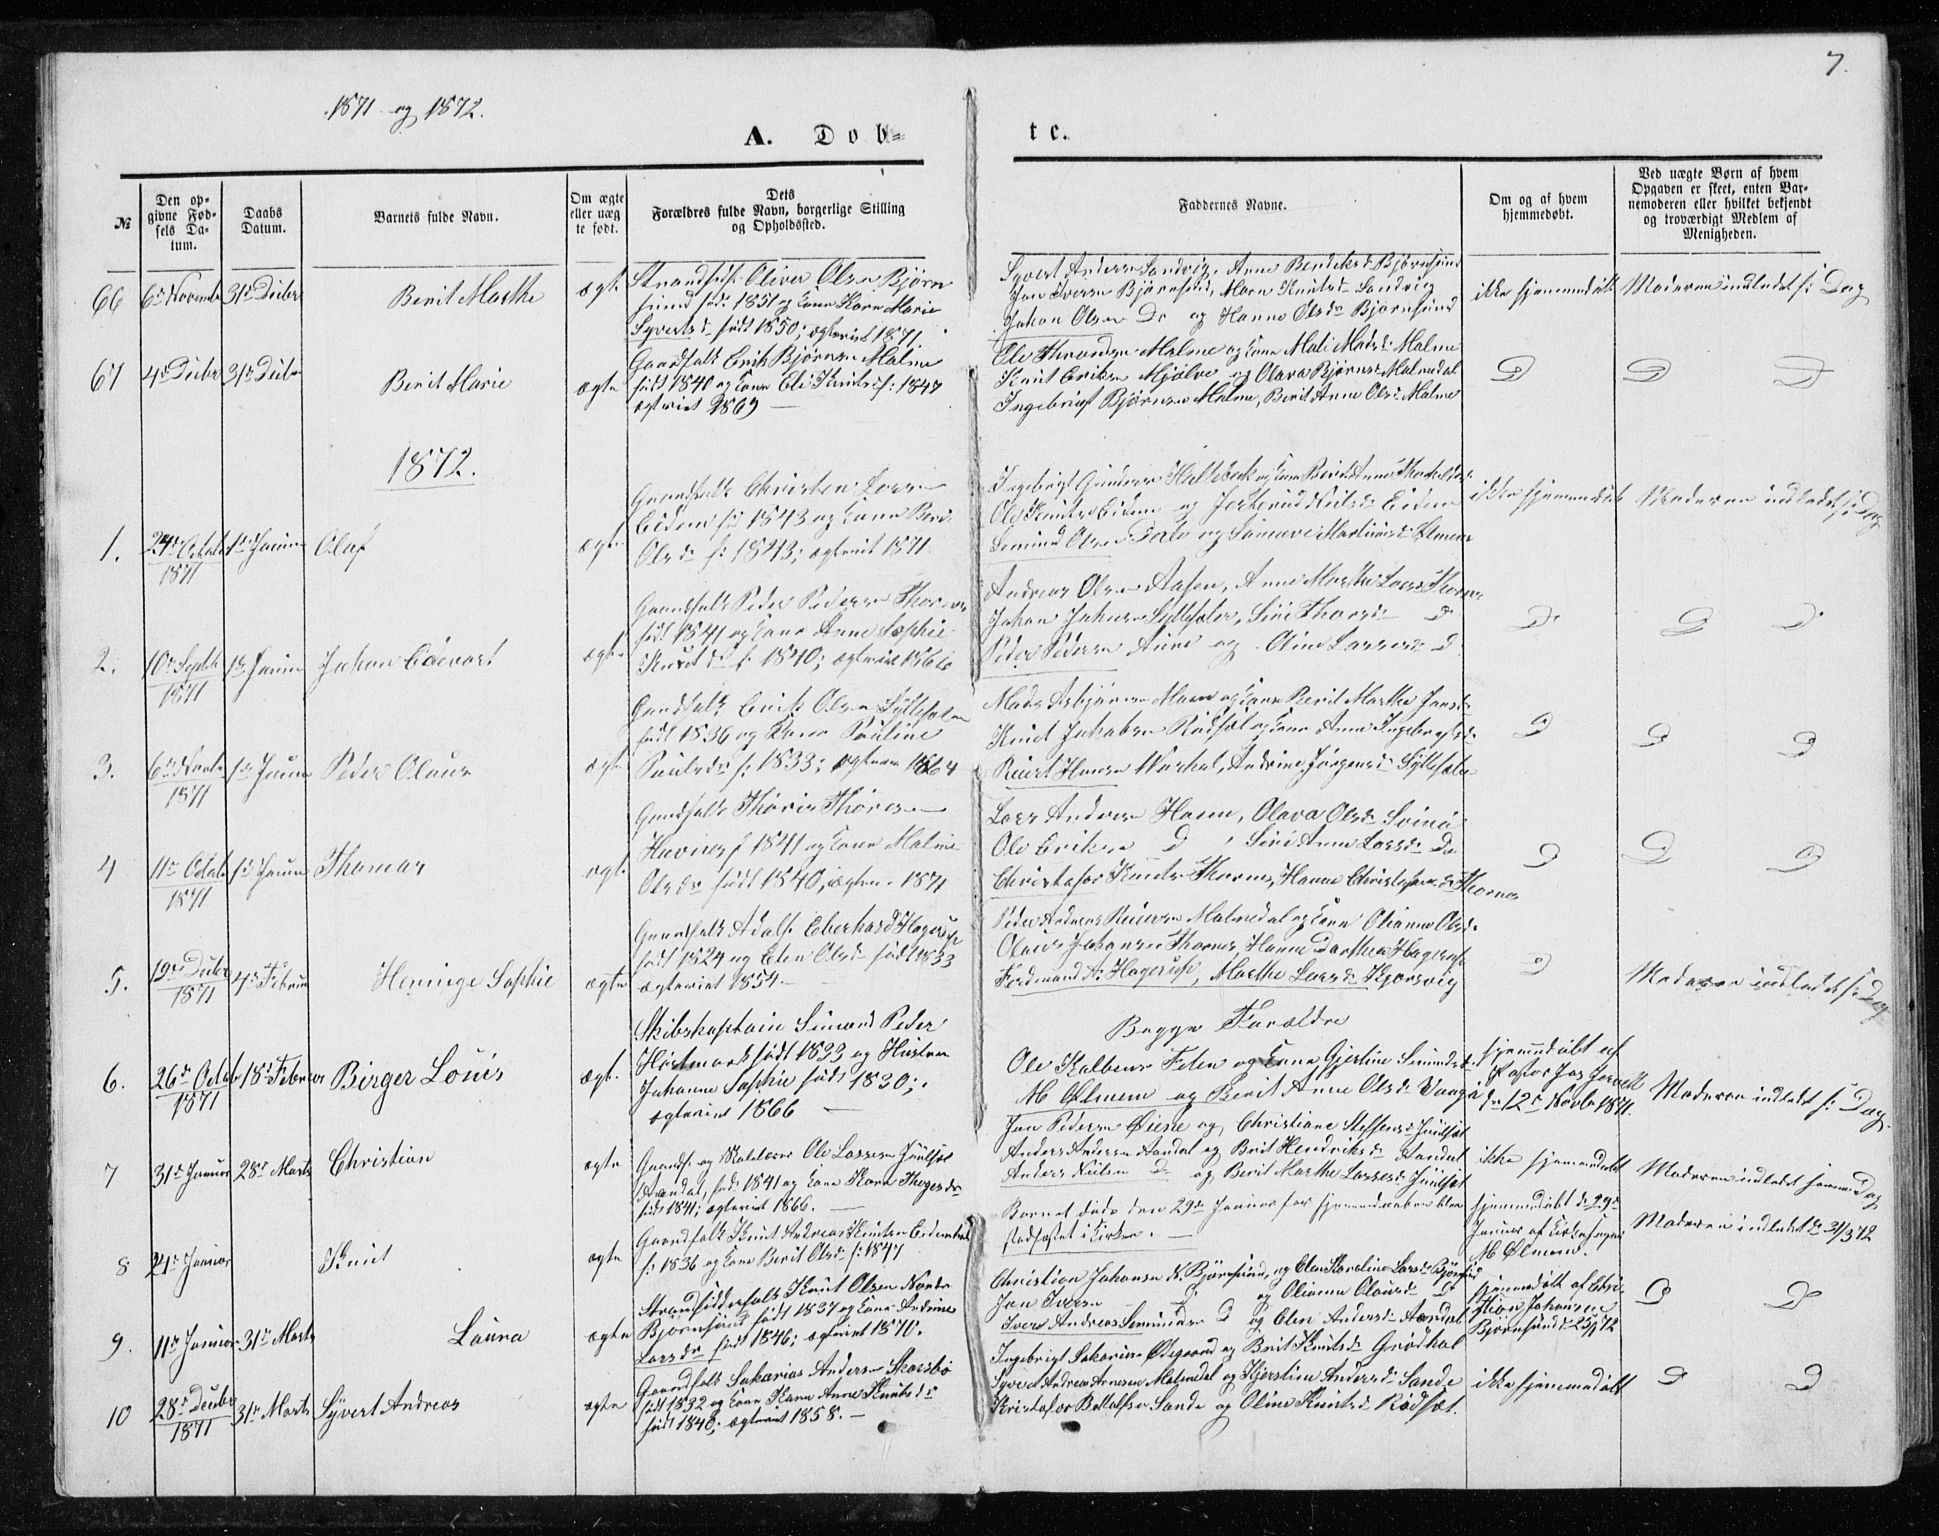 7.
1871 og 1872.
A. Døb-
te.
№
Den op-
givne Fød-
sels Da-
tum.
Daabs
Datum.
Barnets fulde Navn.
Om ægte
eller uæg
te født.
Dets
Forældres fulde Navn, borgerlige Stilling
og Opholdssted.
Faddernes Navne.
Om og af hvem
hjemmedøbt.
Ved uægte Børn af hvem
Opgaven er skeet, enten Bar-
nemoderen eller hvilket bekjendt
og troværdigt Medlem af
Menigheden.
66
31te Decbr
Berit Marthe
ægte
Oliver Olsen Bjørn
sund født 1851 og Kone Maria
Syvertsd. født 1850; ægteviet 1871.
Syvert Andersen Sandvig, Anne Bendiksd. Bjørnsund
Jon Iversen Bjørnsund, Maren Knutsd. Sandvig
Johan Olsen Do og Hanna Olsdr Bjørnsund
ikke hjemmedøbt
Moderen indledet s: Dag
67
4de Decbr
31te Decbr
Berit Marie
ægte
Gaardfolk Erik Bjørnsen Malme
født 1840 og Kone Eli Knutsd. f: 1847
ægteviet 1869
Ole Throndsen Malme og Kone Mali Madsd. Malme
Knut Eriksen Mjelve og Olava Bjørnsd. Malmedal
Ingebrigt Bjørnsen Malme, Berit Anne Olsd. Malme
D
D
D
1872.
1.
24de Octob
1871
1ste Januar
Olaf
ægte
Gaardfolk Christen Larsen
Eidem fød 1843 og Kone Berit
Olsdr f: 1843; ægteviet 1871.
Ole Knutsen Eidem og Nielsd. Eidem
ikke hjemmedøbt
Moderen indledet s: Dag
2.
10de Septb
1871
1ste Januar
Johan Edevart
ægte
Gaardfolk Peder Pedersen Thornes
født 1841 og Kone Anne Sophie
Knutsdr f: 1840; ægteviet 1866
Andreas Olsen Aasen, Anne Marthe Larsd. Thornes
Peder Pedersen Aune og Oline Larsesd. D
D
D
D
3.
6te Novbr
1871
1ste Januar
Peder Olaus
ægte
Gaardfolk Erik Olsen Sylteseter
født 1836 og Kone Pauline
Paulsdr f: 1833; ægteviet 1864
Mads Asbjørnsen Moen og Kone Berit Marthe Jonsd.
Knut Jakobsen Rødsæt og Kone Anne Ingebrigtsd.
D
D
D
4
11te Octob
1871
1ste Januar
Thomas
ægte
Gaardfolk Thoris Thoresen
Havnes f 1841 og Kone Malene
Olsdr født 1840; ægtev. 1871
Lars Andersen Havn, Olava Olsd. Svinø
Ole Eriksen D, Sine Anne Larsd. Do
Christofer Knutsen Thornes, Hanne Christofersd. Thornes
D
D
D
5.
19de Decbr
1871
4de Februar
Heringe Sophie
ægte
Gaardfolk Adolf Eberhard Hagerup
født 1824 og Elen Olsd. født 1833
ægteviet 1854.
Peder Andreas Reiersen Malmedal og Kone Olianna Olsd.
Olaus Johansen Thornes Hanne Dorthea Hagerup
Ferdinand A. Hagerup, Marthe Larsd. Hjørsvig
D
Moderen indledet s: Dag
6.
26de Octob
1871
18de Februar
Birger Louis
ægte
Skibskaptain Simond Peder
Hustmark født 1833 og Hustru
Johanne Sophie født 1830;
ægteviet 1866
Begge Forældre
Ole Kolbensen Feten og Kone Gjertine Simondsd.
M Ølmem og Berit Anne Olsdr Vaagø
Hjemmedøbt af
Pastor Jas Jervell
den 12te Novbr 1871.
Moderen indledet s: Dag.
7
31te Januar
28de Marts
Christian
ægte
Gaardf. og Maleren Ole Larsen Juulsæt
Aandal, født 1841 og Kone Karen Thygersdr
født 1841; ægteviet 1866.
Jon Pedersen Øiene og Christiane Steffensd. Juulsæt
Anders Andersen Aandal og Brit Hendriksd. Aandal
Anders Nielsen D og Berit Marthe Larsesd. Juulsæt
ikke hjemmedøbt
Moderen indledet samme Dag
8
24de Januar
Knut
ægte
Gaardfolk Knut Andreas Knutsen
f: 1836 og Kone Berit Olsd. f: 1847
Barnet døde den 29de Januar før Hjemmedaaben blev
stadfæstet i Kirken.
Hjemmedøbt d. 29de
Januar af Kirkesanger
M Ølmem.
Moderen indledet d. 31/3 72
9.
11te Januar
31te Marts
Laura
ægte
Strandsidderfolk Knut Olsen Nordre
Bjørnsund født 1837 og Kone Andrine
Larsdr født 1846; ægteviet 1870.
Christian Johansen N. Bjørnsund, og Elen Karoline Larsd. Bjørnsund
Jon Iversen D og Olianna Olausd. D
Iver Andreas Simundsen D og Elen Andersd. Aandal
Hjemmedøbt af Chri-
stian Johansen
Bjørnsund d. 25/1 72
D
D
10
28de Decbr
1871
31te Marts
Syvert Andreas
ægte
Gaardfolk Sakarias Andersen Skarsbø
født 1832 og Kone Karen Anne Knutsdr
født 1840; ægteviet 1858.
Ingebrigt Sakariasen Ødegaard og Brit Knutsd. Grødkal
Syvert Andreas Arnesen Malmedal og Kjerstine Andersd. Sande
Kristofer Bottolfsen Sande og Oline Knutsd. Rødsæt.
ikke hjemmedøbt
D
D